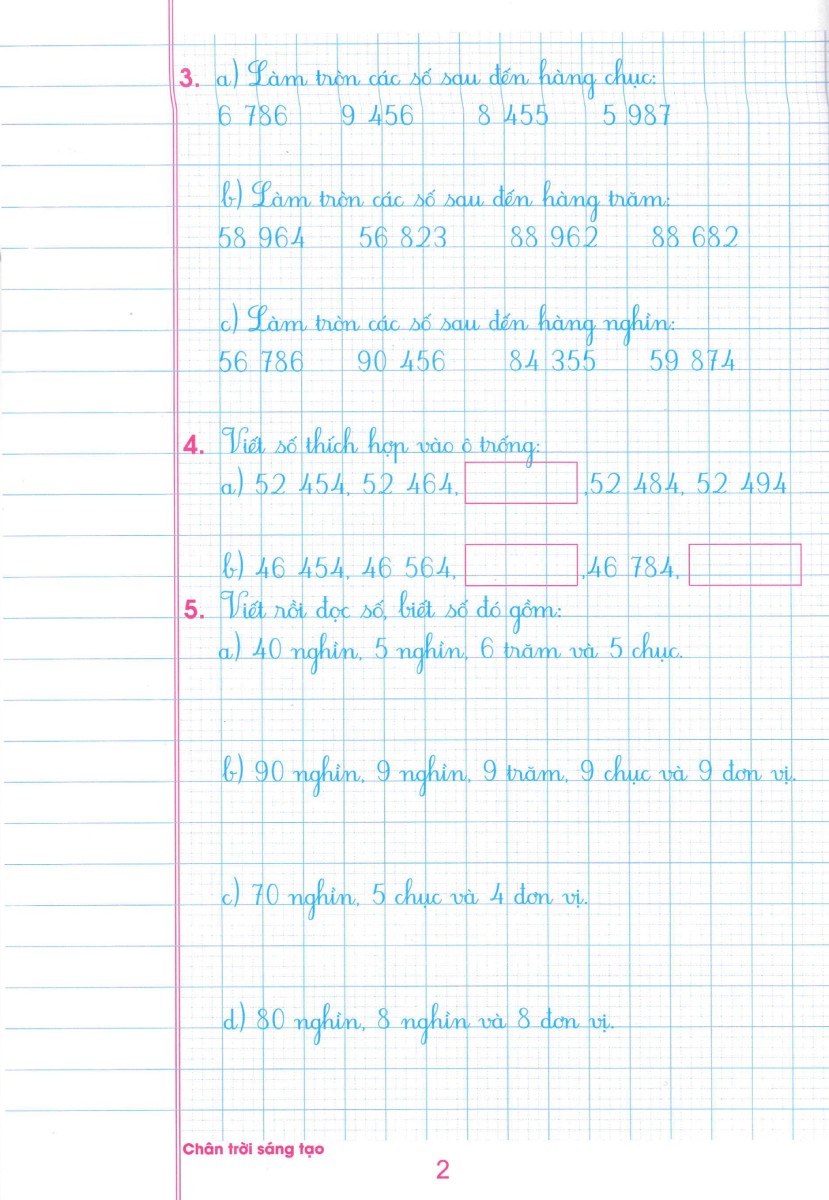 3. a) Làm tròn các số sau đến hàng chục:
6 786 9 456 8 455 5 987
b) Làm tròn các số sau đến hàng trăm:
58 964 56 823 88 962 88 682
c) Làm tròn các số sau đến hàng nghìn:
56 786 90 456 84 355 59 874
4. Viết số thích hợp vào ô trống:
a) 52 454, 52 464, ,52 484, 52 494
b) 46 454, 46 564, ,46 784,
5. Viết rồi đọc số, biết số đó gồm:
a) 40 nghìn, 5 nghìn, 6 trăm và 5 chục.
b) 90 nghìn, 9 nghìn, 9 trăm, 9 chục và 9 đơn vị.
c) 70 nghìn, 5 chục và 4 đơn vị.
d) 80 nghìn, 8 nghìn và 8 đơn vị.
Chân trời sáng tạo
2